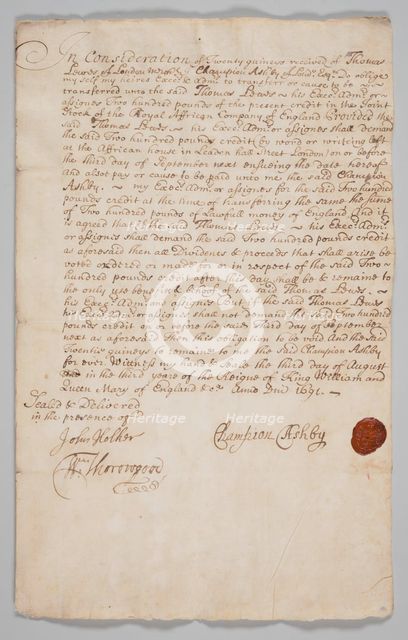 In Consideration of Twenty guineys received of Thomas
Bewes of London Merch.t I Champion Ashby of Lond.o Esq.r Do oblige
my self my heires Exec.rs & Adm.rs to transferr or cause to be
transferred unto the said Thomas Bewes ~ his Exec.rs Adm.rs or
assignes Two hundred pounds of the present credit in the Joint
Stock of the Royall Affrican Company of England Provided the
said Thomas Bewes ~ his Exec.rs Adm.rs or assignes shall demand
the said Two hundred pounds credit by word or writing left
at the African house in Leaden hall Street London on or before
the third day of September next ensuing the date hereof
and alsoe pay or cause to be paid unto me the said Champion
Ashby ~ my Exec.rs Adm.rs or assignes for the said Two hundred
pounds credit at the time of transferring the same the sume
of Two hundred pounds of Lawfull money of England And it
is agreed that if the said Thomas Bewes ~ his Exec.rs Adm.rs
or assignes shall demand the said Two hundred pounds credit
as aforesaid then all Dividents & proceeds that shall arise be
voted ordered or made for or in respect of the said Two
hundred pounds credit after this day shall be & remaine to
the only use benefit & behoof of the said Thomas Bewes ~
his Exec.rs Adm.rs or assignes But if the said Thomas Bewes
his Exec.rs Adm.rs or assignes shall not demand the said Two hundred
pounds credit on or before the said Third day of September
next as aforesaid Then this obligation to be void And the said
Twentie guineys to remaine to me the said Champion Ashby
for ever. Witness my hand & seale the third day of August
in the third yeare of the Reigne of King William and
Queen Mary of England &c.a Anno Dni 1691.
Sealed & Delivered
in the presence of
John Holker
Champion Ashby
Wm. Thorowgood
Heritage
Heritage
Heritage
Heritage